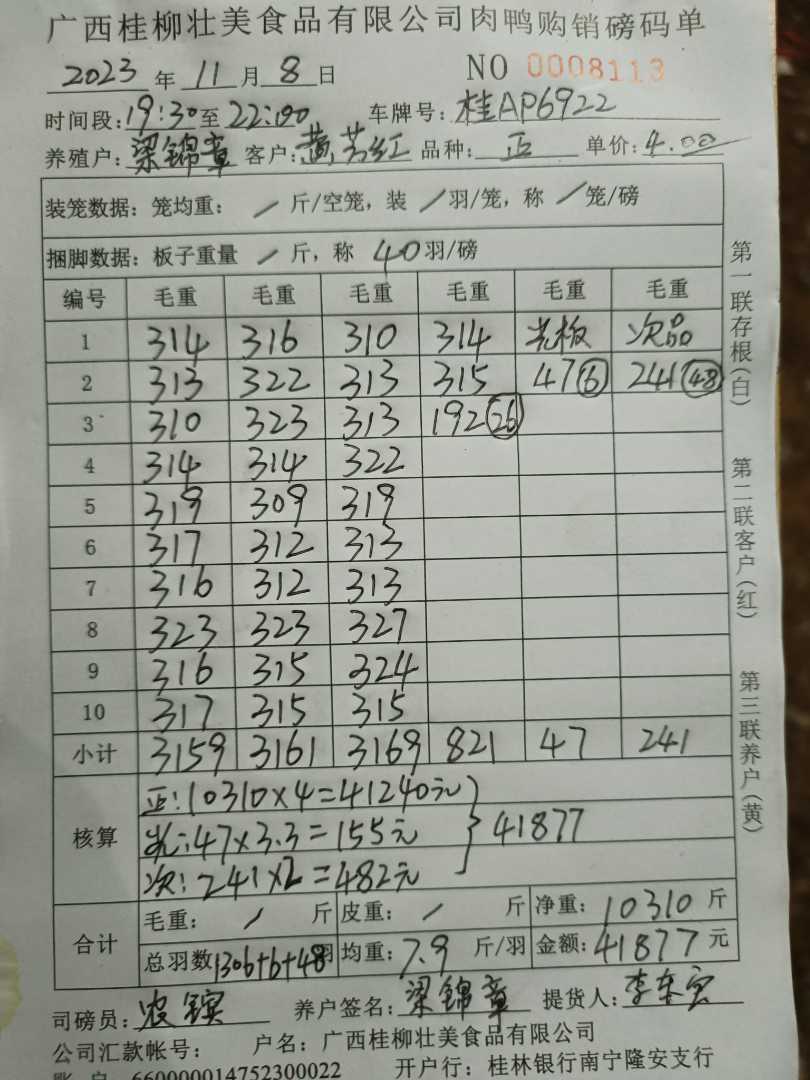 广西桂柳壮美食品有限公司肉鸭购销磅码单
2023年11月8日 NO 0008113
时间段:19:30至22:00 车牌号:桂AP6922
养殖户:梁锦章 客户:黄芳红 品种:正 单价:4.00
装笼数据:笼均重:/斤/空笼,装/羽/笼,称/笼/磅
捆脚数据:板子重量/斤,称40羽/磅
编号 毛重 毛重 毛重 毛重 毛重 毛重
1 314 316 310 314 光板 次品
2 313 322 313 315 47⑥ 241㊽
3 310 323 313 192㉖
4 314 314 322
5 319 309 319
6 317 312 313
7 316 312 313
8 323 323 327
9 316 315 324
10 317 315 315
小计 3159 3161 3169 821 47 241
核算
正:10310×4=41240元
光:47×3.3=155元 } 41877
次:241×2=482元
合计
毛重:/斤 皮重:/斤 净重:10310斤
总羽数1306+6+48羽 均重:7.9斤/羽 金额:41877元
司磅员:农 养户签名:梁锦章 提货人:李东
公司汇款帐号: 户名:广西桂柳壮美食品有限公司
账户 660000014752300022 开户行:桂林银行南宁隆安支行
第一联存根(白)
第二联客户(红)
第三联养户(黄)